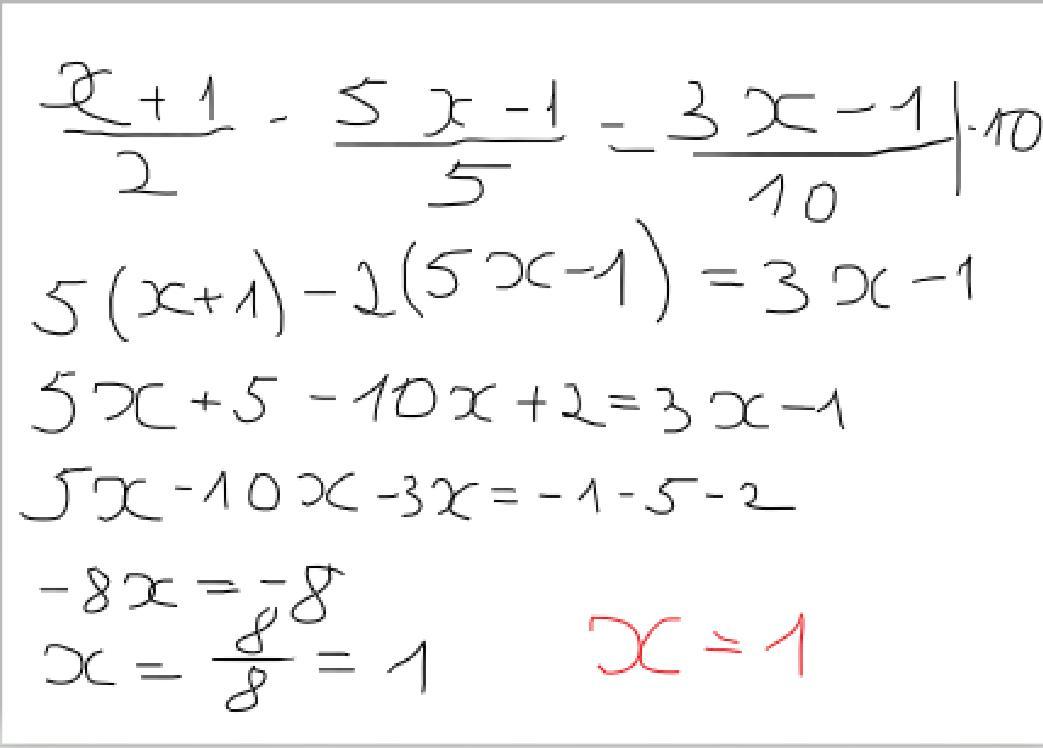 (x+1)/2 - (5x-1)/5 = (3x-1)/10 |·10
5(x+1)-2(5x-1)=3x-1
5x+5-10x+2=3x-1
5x-10x-3x=-1-5-2
-8x=-8
x=8/8=1 x=1